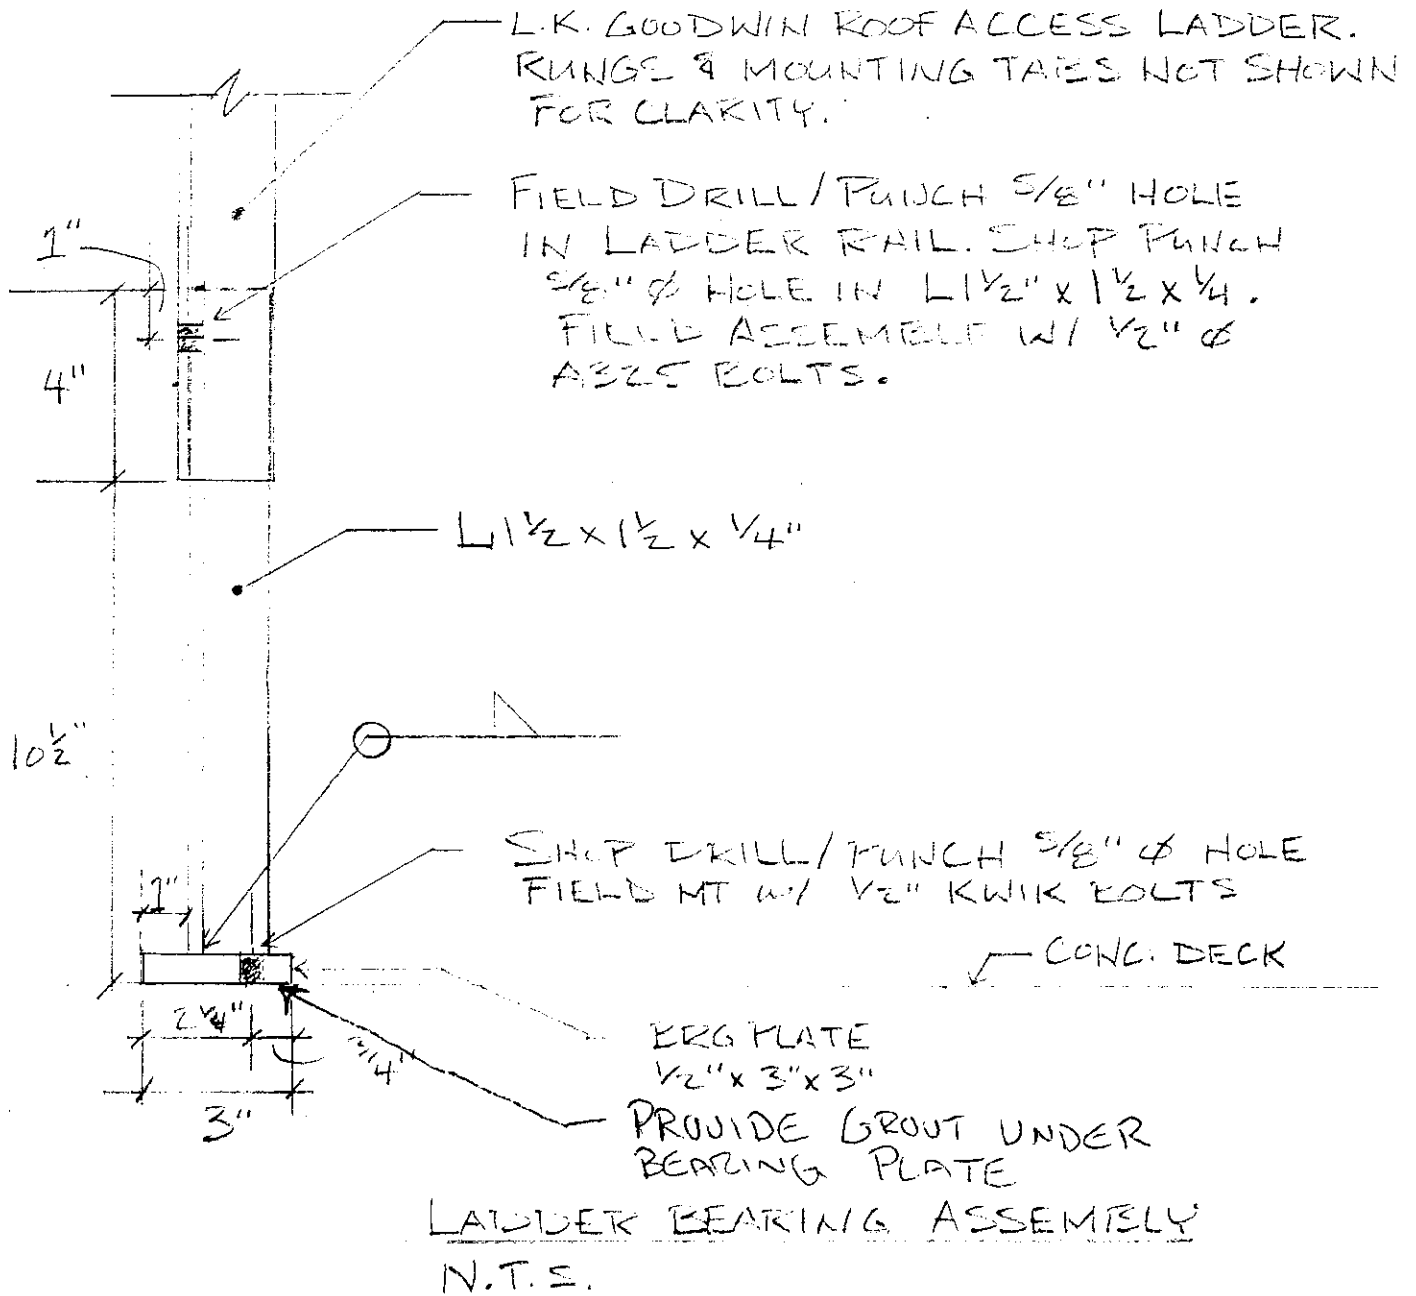 L.K. GOODWIN ROOF ACCESS LADDER.
RUNGS & MOUNTING TABS NOT SHOWN
FOR CLARITY.
FIELD DRILL/PUNCH 5/8" HOLE
IN LADDER RAIL. SHOP PUNCH
5/8" Ø HOLE IN L1½" x 1½ x ¼.
FIELD ASSEMBLE W/ ½" Ø
A325 BOLTS.
1"
4"
L1½ x 1½ x ¼"
10½"
SHOP DRILL/PUNCH 5/8" Ø HOLE
FIELD MT W/ ½" KWIK BOLTS
1"
CONC. DECK
2¼"
3/4"
3"
BRG PLATE
½" x 3" x 3"
PROVIDE GROUT UNDER
BEARING PLATE
LADDER BEARING ASSEMBLY
N.T.S.